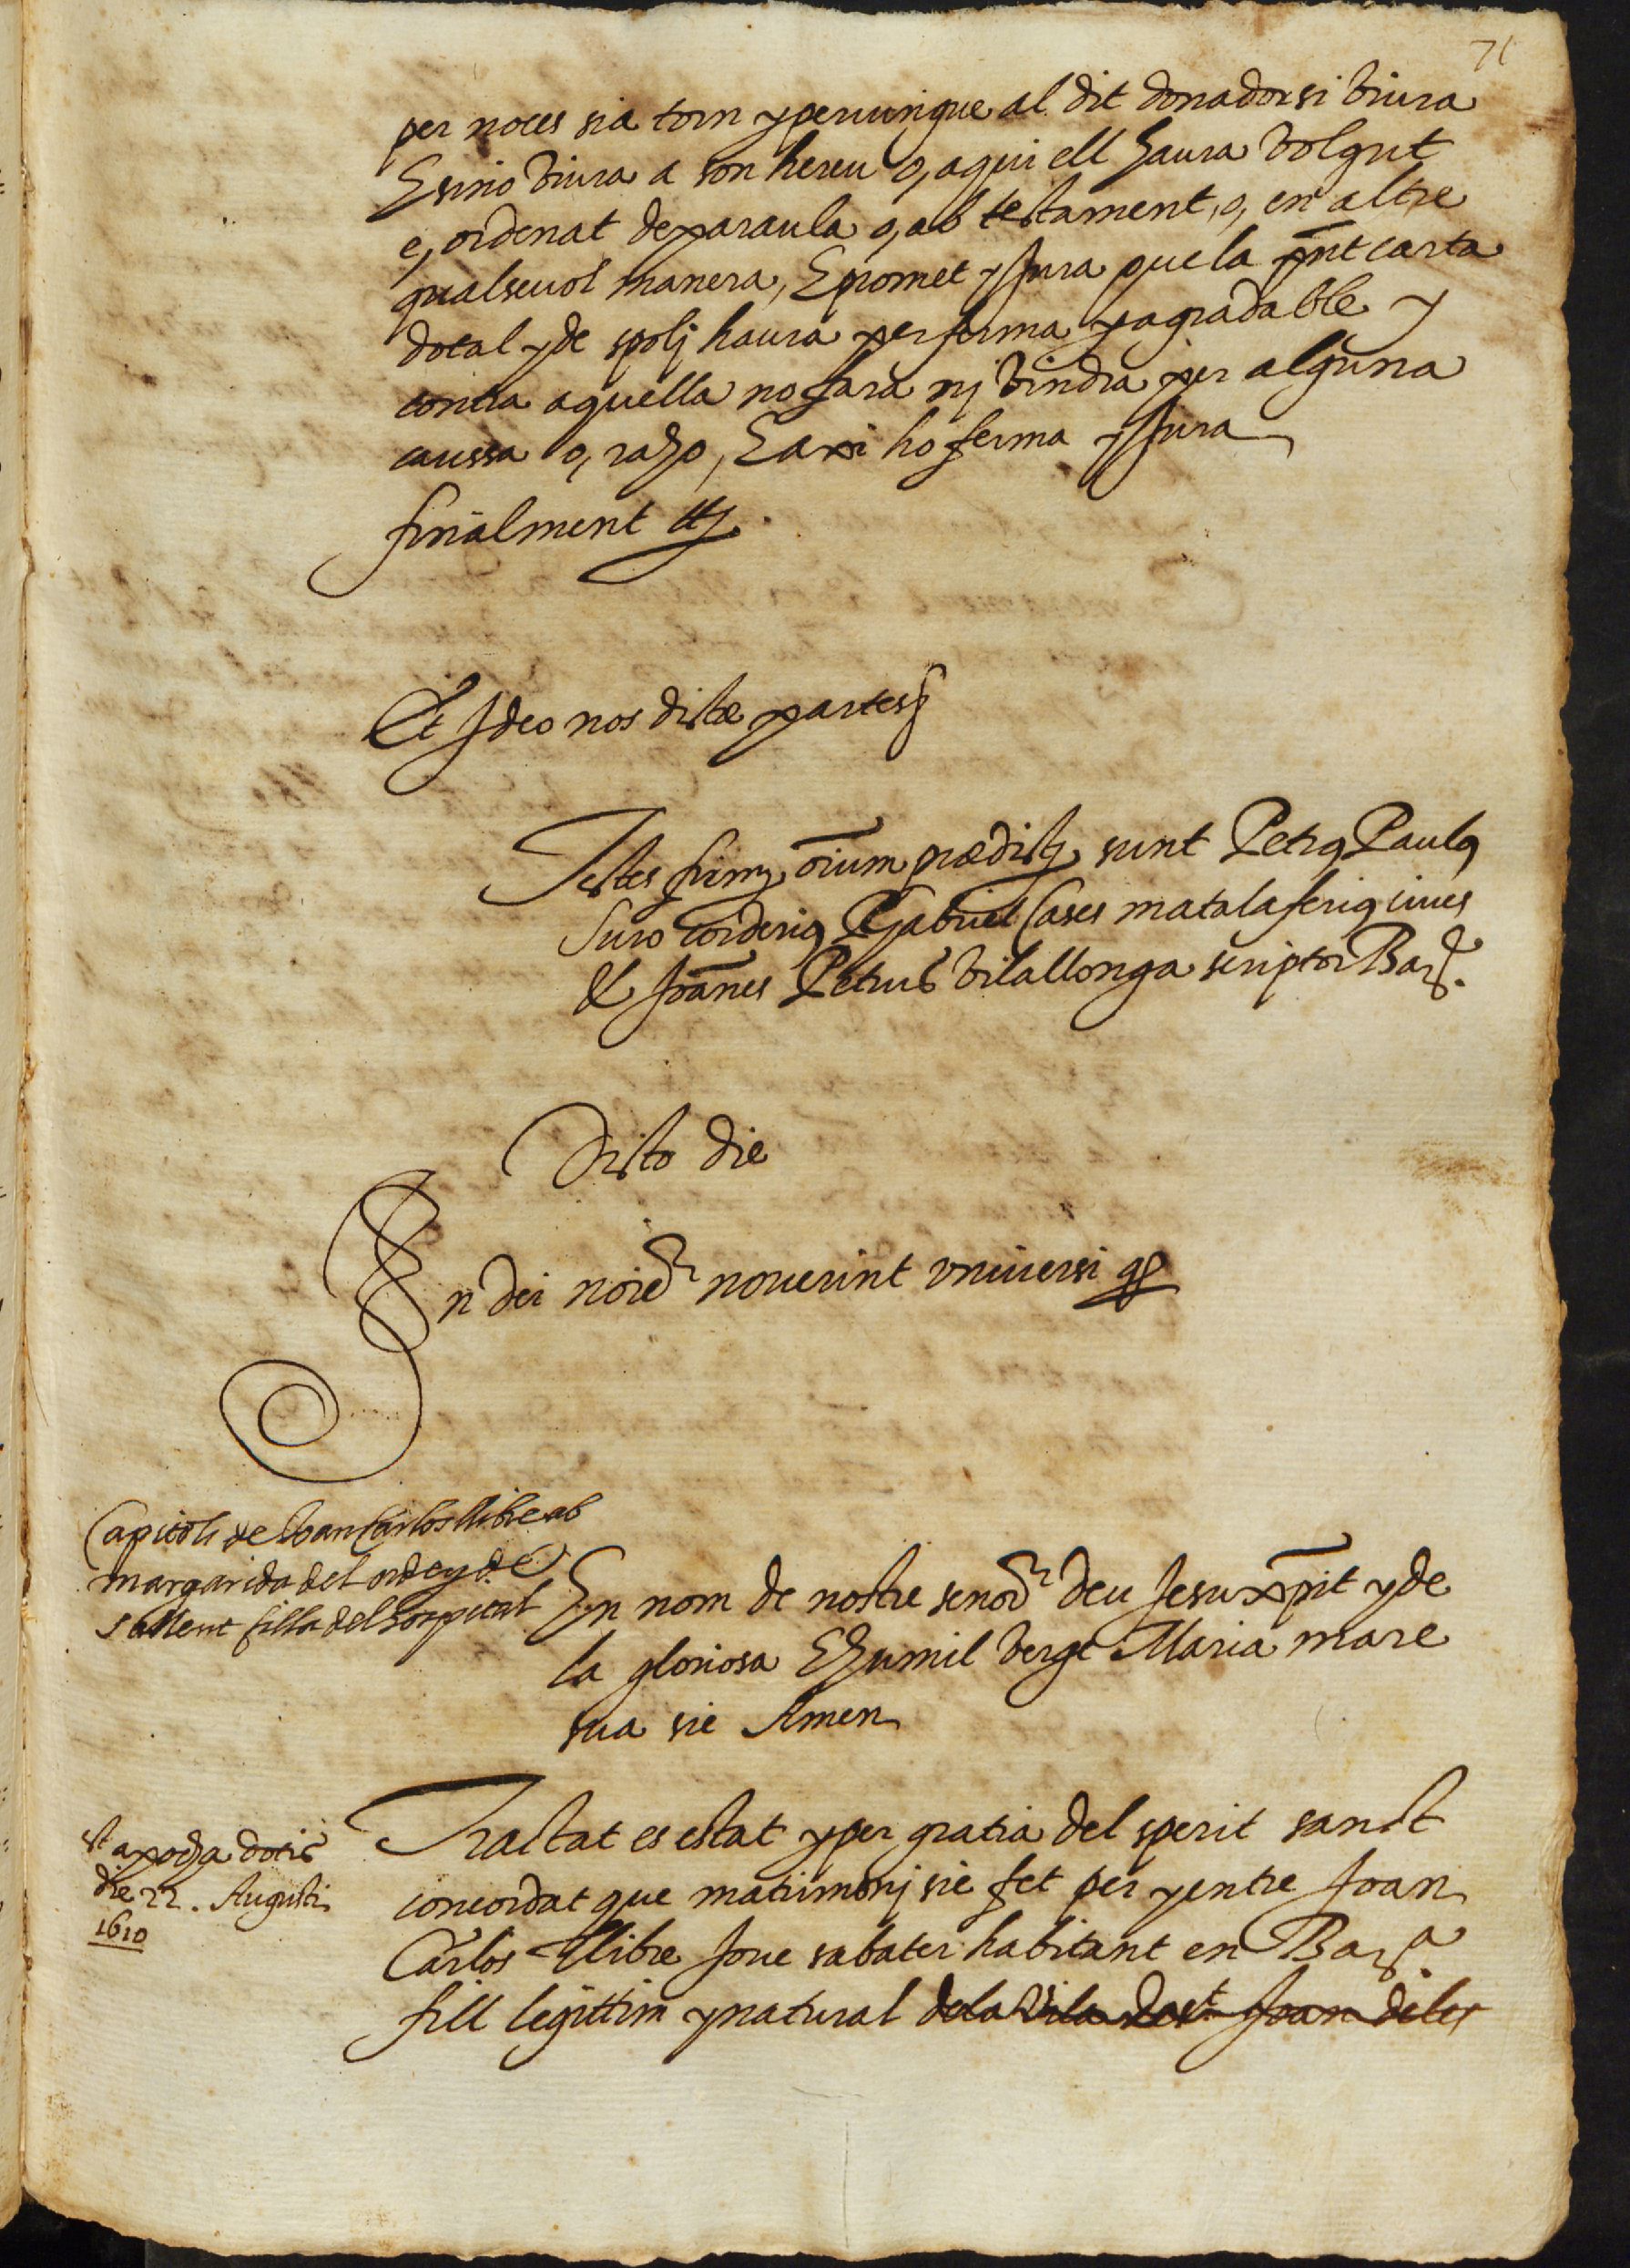 71
per noces sia torn y pervingue al dit donador si viura
E sino viura a son hereu o, a qui ell haura volgut
e, ordenat de paraula o, ab testament, o, en altre
qualsevol manera, E promet y jura que la pnt carta
dotal y de spolj haura per ferma y agradable y
contra aquella no fara nj vindra per alguna
caussa o, raho, E axi ho ferma y jura
finalment etc.
Et Ideo nos dictæ partes
Testes firmæ oium prædictæ sunt Petrus Paulus
Suro corderius Gabriel Cases matalaferius cives
& Joãnes Petrus Vilallonga scriptor Barc.
Dicto die
In dei noie noverint universi
Capitols de Joan Carlos llibre ab
margarida del orde y de
sallent filla del hospital
En nom de nostre senor deu Jesu xpist y de
la gloriosa E humil verge Maria mare
sua sie Amen
st apocha dotis
die 22. Augusti
1610
Tractat es estat y per gratia del sperit sanct
concordat que matrimonj sie fet per y entre Joan
Carlos Llibre Jove sabater habitant en Barna
fill legittim y natural de la vila de st Joan deles